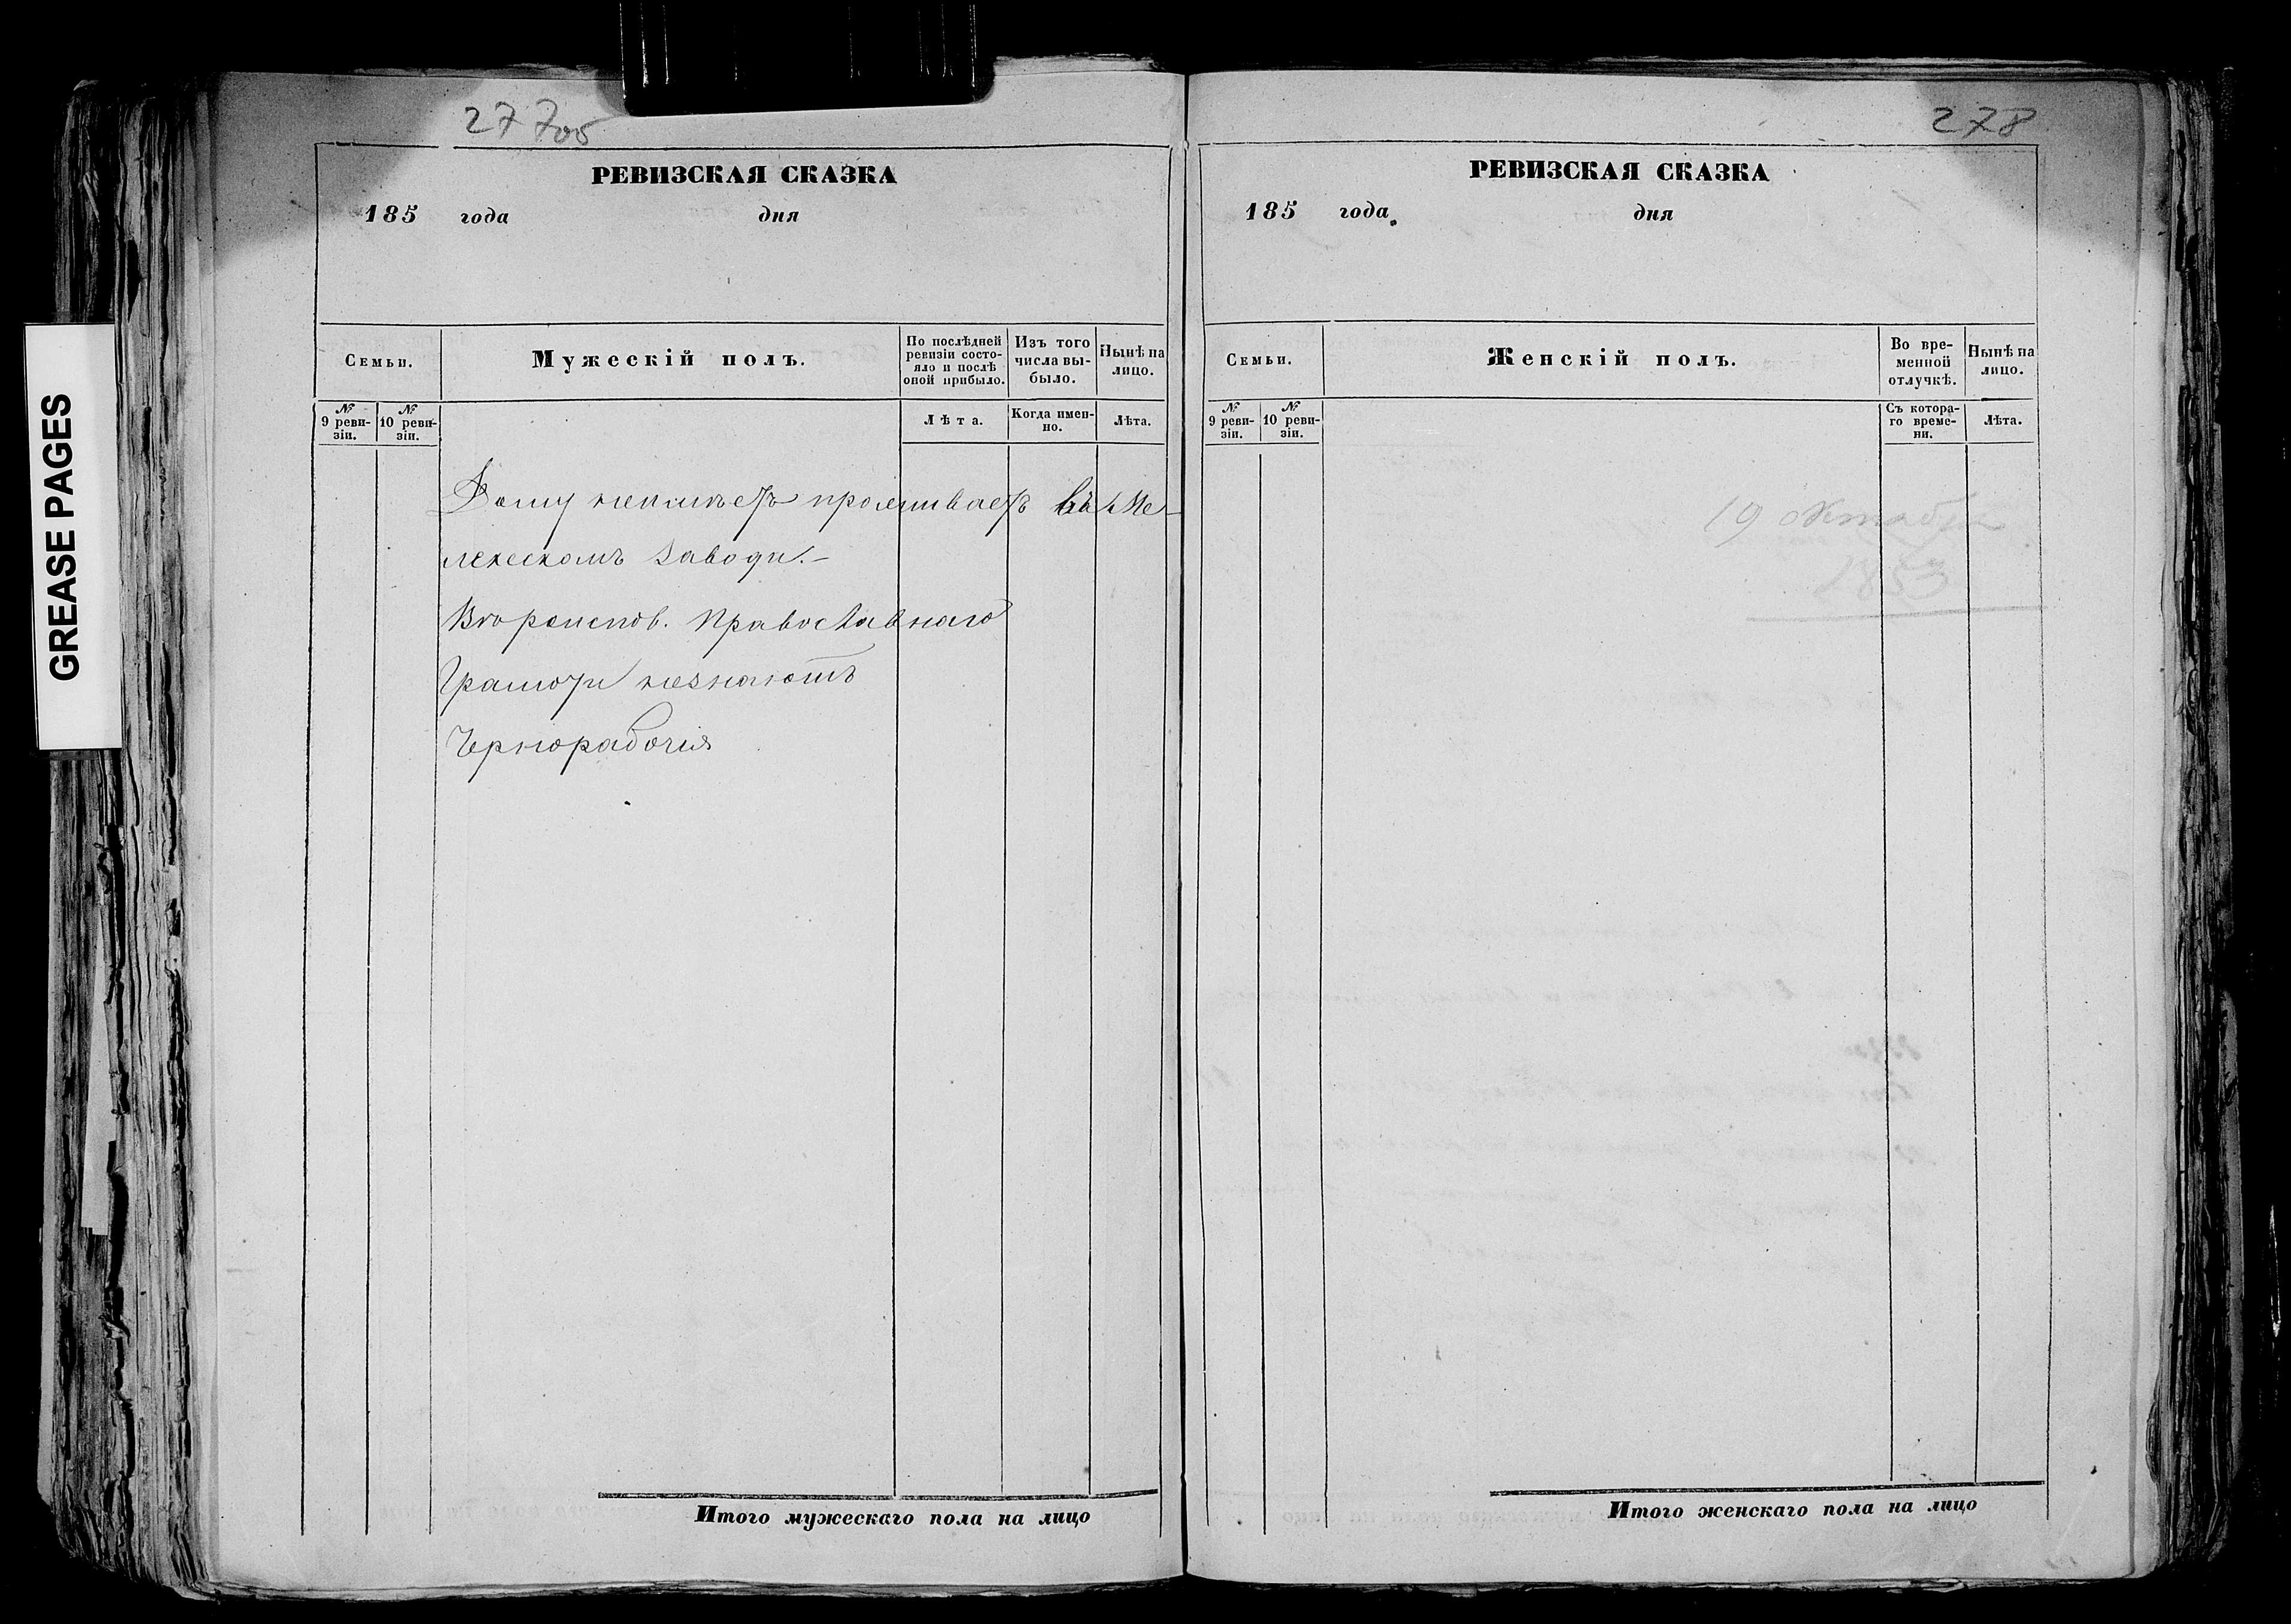 GREASE PAGES
277об
РЕВИЗСКАЯ СКАЗКА
185 года дня
Семьи.
Мужескій полъ.
По послѣдней ревизіи состояло и послѣ оной прибыло.
Изъ того числа выбыло.
Нынѣ на лицо.
№ 9 ревизіи.
№ 10 ревизіи.
Лѣта.
Когда именно.
Лѣта.
Дому неимѣетъ проживаетъ въ Ме-
лекескомъ заводи.–
Вѣроиспов. православнаго
Грамоти незнаютъ
Чернорабочия
Итого мужескаго пола на лицо
278
РЕВИЗСКАЯ СКАЗКА
185 года дня
Семьи.
Женскій полъ.
Во временной отлучкѣ.
Нынѣ на лицо.
№ 9 ревизіи.
№ 10 ревизіи.
Съ котораго времени.
Лѣта.
19 октября
1853
Итого женскаго пола на лицо